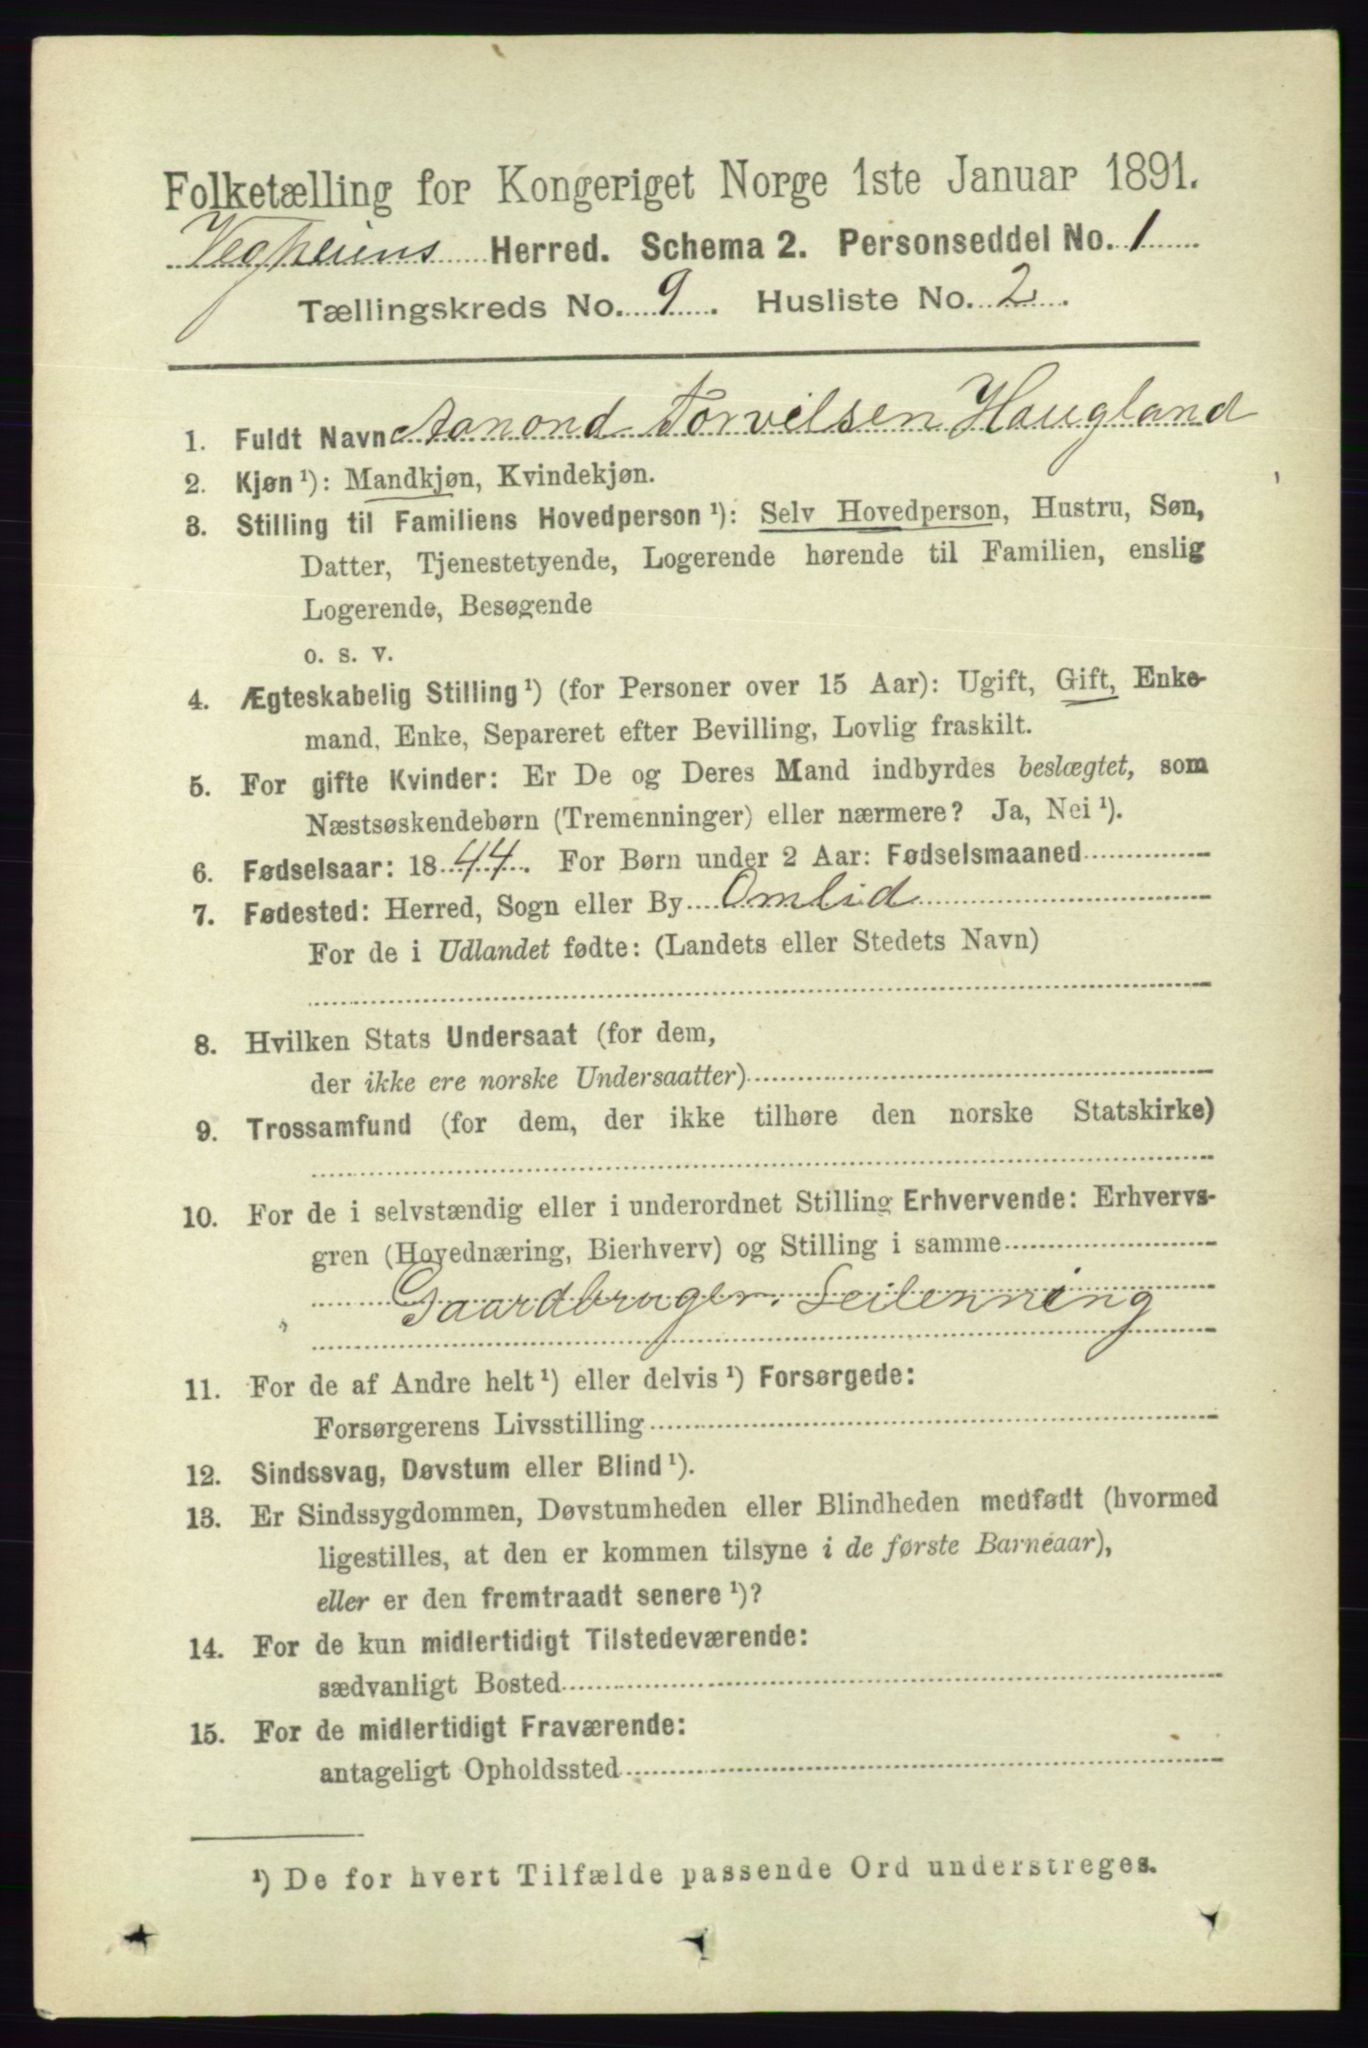 Folketælling for Kongeriget Norge 1ste Januar 1891.
Vegheiens Herred. Schema 2. Personseddel No. 1
Tællingskreds No. 9. Husliste No. 2.
1. Fuldt Navn Aanond Torvilsen Haugland
2. Kjøn ¹): Mandkjøn, Kvindekjøn.
3. Stilling til Familiens Hovedperson ¹): Selv Hovedperson, Hustru, Søn,
Datter, Tjenestetyende, Logerende hørende til Familien, enslig
Logerende, Besøgende
o. s. v.
4. Ægteskabelig Stilling ¹) (for Personer over 15 Aar): Ugift, Gift, Enke-
mand, Enke, Separeret efter Bevilling, Lovlig fraskilt.
5. For gifte Kvinder: Er De og Deres Mand indbyrdes beslægtet, som
Næstsøskendebørn (Tremenninger) eller nærmere? Ja, Nei ¹).
6. Fødselsaar: 1844. For Børn under 2 Aar: Fødselsmaaned
7. Fødested: Herred, Sogn eller By Omlid
For de i Udlandet fødte: (Landets eller Stedets Navn)
8. Hvilken Stats Undersaat (for dem,
der ikke ere norske Undersaatter)
9. Trossamfund (for dem, der ikke tilhøre den norske Statskirke)
10. For de i selvstændig eller i underordnet Stilling Erhvervende: Erhvervs-
gren (Hovednæring, Bierhverv) og Stilling i samme
Gaardbruger. Leilenning
11. For de af Andre helt ¹) eller delvis ¹) Forsørgede:
Forsørgerens Livsstilling
12. Sindssvag, Døvstum eller Blind ¹).
13. Er Sindssygdommen, Døvstumheden eller Blindheden medfødt (hvormed
ligestilles, at den er kommen tilsyne i de første Barneaar),
eller er den fremtraadt senere ¹)?
14. For de kun midlertidigt Tilstedeværende:
sædvanligt Bosted
15. For de midlertidigt Fraværende:
antageligt Opholdssted
¹) De for hvert Tilfælde passende Ord understreges.